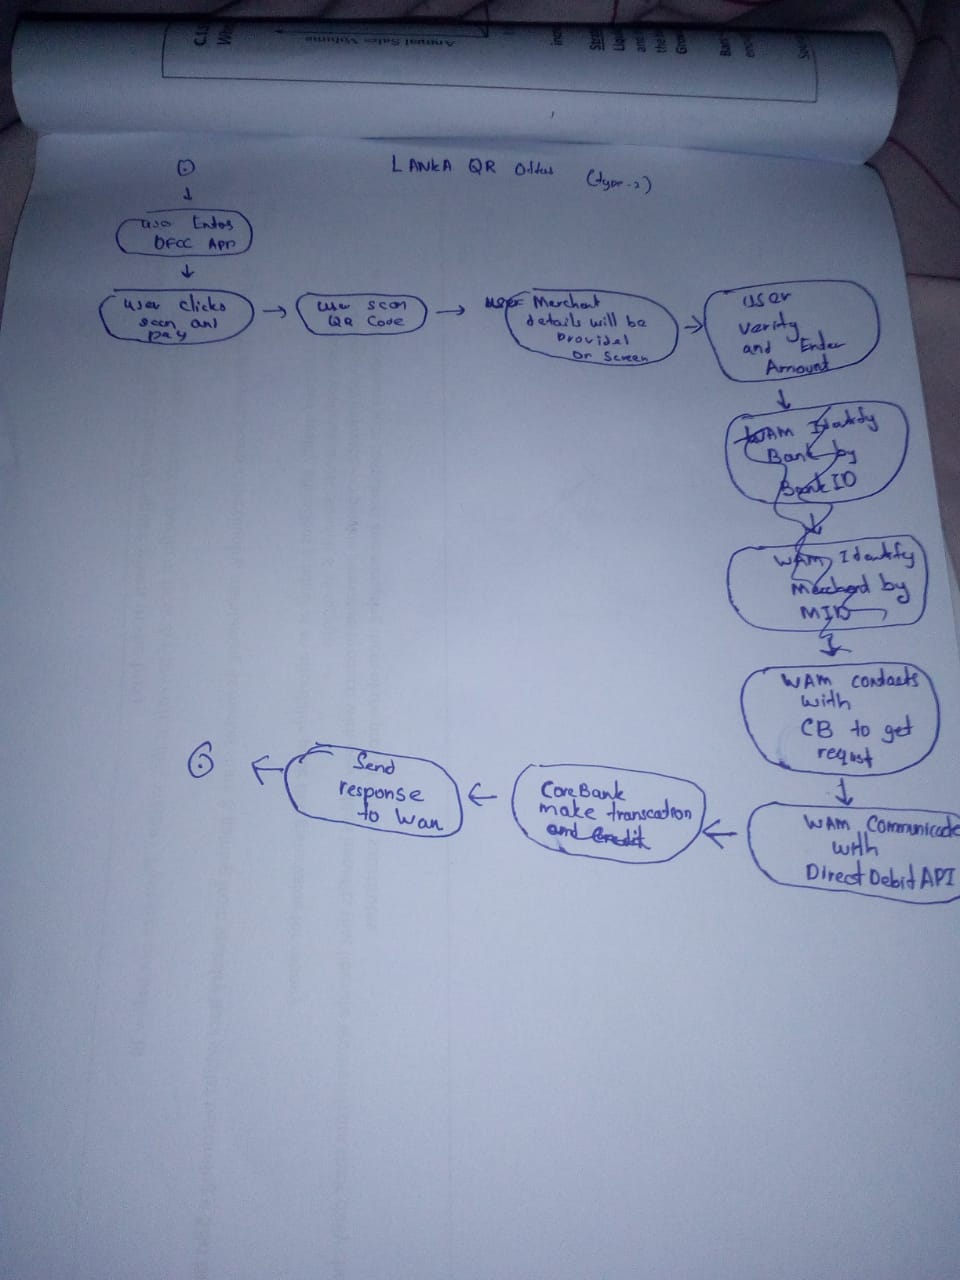 C.1.
Wh
Annual Sales Volume
inc
Str
Liqu
and
the
Gro
Ban
enc
Sou
LANKA QR (type-2)
user Enters
DFCC App
user clicks
scan and
pay
user scan
QR Code
user Merchant
details will be
Providel
on Screen
user
verify
and Enter
Amount
WAM Identify
Bank by
Bank ID
WAM Identify
Merchant by
MID
WAM contacts
with
CB to get
requst
WAM Communicate
with
Direct Debit API
CoreBank
make transcation
and Credit
Send
response
to Wam